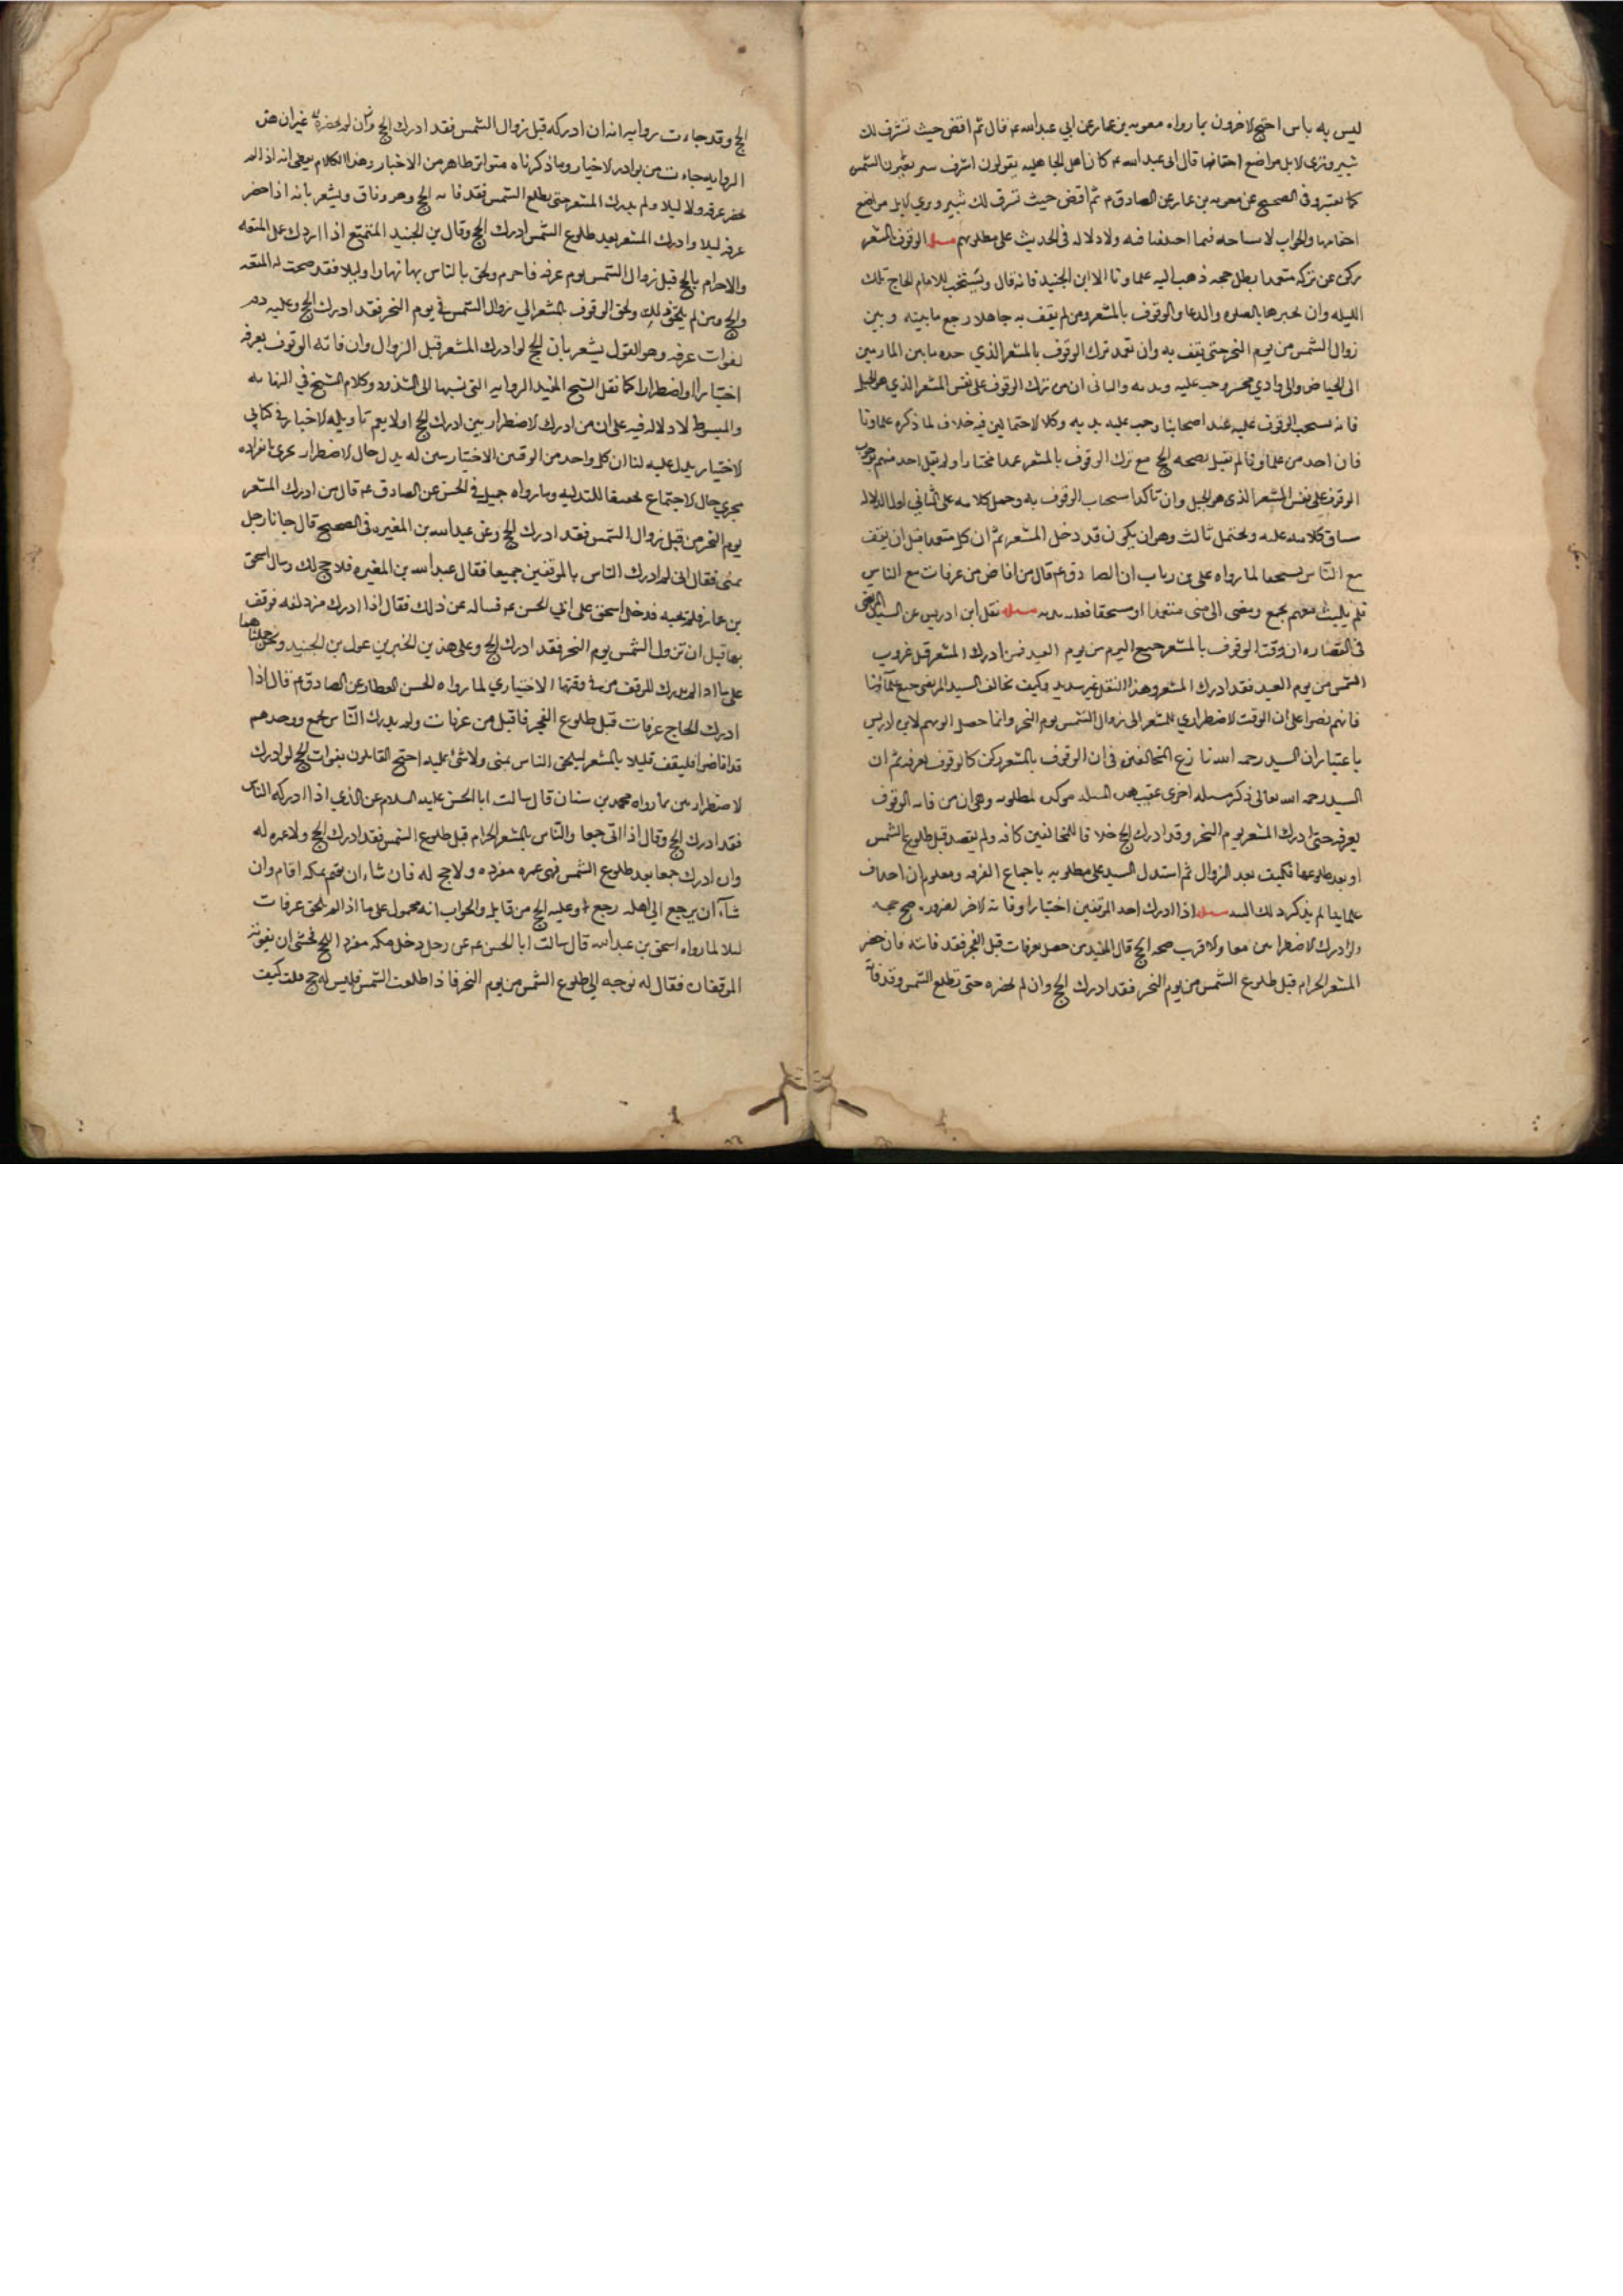 ليس به باس احتج الاخرون بما رواه معويه بن عمار عن ابي عبد الله ع قال ثم افض حيث تشرق لك
ثبير وترى الابل مواضع اخفافها قال ابى عبد الله ع كان اهل الجاهليه يقولون اشرق ثبير يعنون الشمس
كما تغير وفى الصحيح عن معويه بن عمار عن الصادق ع ثم افض حيث تشرق لك ثبير وترى الابل مواضع
اخفافها والجواب لا مشاحه فيما اختلفنا فيه ولا دلاله فى الحديث على مطلوبهم مسله الوقوف بالمشعر
ركن من تركه متعمدا بطل حجه ذهب اليه علماونا الا ابن الجنيد فانه قال ويستحب للامام الحاج تلك
الليله وان يحيوها بالصلوه والدعا والوقوف بالمشعر ومن لم يقف به جاهلا رجع ما بينه وبين
زوال الشمس من يوم النحر حتى يقف به وان تعمد ترك الوقوف بالمشعر الذي حده ما بين المازمين
الى الحياض والى وادي محسر وجب عليه وبدنه والثانى ان من ترك الوقوف على نفس المشعر الذي هو الجبل
فانه يستحب الوقوف عليه عند اصحابنا وجب عليه بدنه وكلا الاحتمالين فيه خلاف لما ذكره علماونا
فان احد من علماونا لم يقل بصحه الحج مع ترك الوقوف بالمشعر عمدا مختارا ولم يقل احد منهم بوجوب
الوقوف على نفس المشعر الذى هو الجبل وان تاكد استحباب الوقوف به وحمل كلامه على الثاني اولى لدلاله
سياق كلامه عليه ويحتمل ثالث وهو ان يكون قد دخل المشعر ثم ان كل متعمدا قبل ان يقف
مع الناس مستخفا لما رواه على بن رباب ان الصادق ع قال من افاض من عرفات مع الناس
فلم يلبث معهم بجمع ومضى الى منى متعمدا او مستخفا فعليه بدنه مسله نقل ابن ادريس عن السيد المرتضى
فى انتصاره ان وقت الوقوف بالمشعر جميع اليوم من يوم العيد فمن ادرك المشعر قبل غروب
الشمس من يوم العيد فقد ادرك المشعر وهذا النقل غير سديد وكيف يخالف السيد المرتضى جميع علماؤنا
فانهم نصوا على ان الوقت الاضطراري للمشعر الى زوال الشمس يوم النحر وانما حصل الوهم لابن ادريس
باعتبار ان السيد رحمه الله نازع المخالفين فى ان الوقوف بالمشعر ركن كالوقوف بعرفه ثم ان
السيد رحمه الله تعالى ذكر مسله اخرى عقيب هذه المسله موكده لمطلوبه وهو ان من فاته الوقوف
بعرفه حتى ادرك المشعر يوم النحر وقد ادرك الحج خلافا للمخالفين كافه ولم يقصد قبل طلوع الشمس
او بعد طلوعها فكيف بعد الزوال ثم استدل السيد على مطلوبه باجماع الفرقه ومعلوم ان احدا من
علماينا لم يذكر ذلك البته مسله اذا ادرك احد الموقفين اختيارا وفاته الاخر لضروره صح حجه
ولو ادرك الاضطرارين معا والاقرب صحه الحج قال المفيد من حصل بعرفات قبل الفجر فقد فاته فان حضر
المشعر الحرام قبل طلوع الشمس من يوم النحر فقد ادرك الحج وان لم يحضره حتى تطلع الشمس وقد فاته
الحج وقد جاءت روايه انه ان ادركه قبل زوال الشمس فقد ادرك الحج غير ان هذه
الروايه جاءت من نوادر الاخبار وما ذكرناه متواتر ظاهر من الاخبار وهذا الكلام يعطى انه اذا لم
يحضر عرفه ولا ليلا ولم يدرك المشعر حتى يطلع الشمس فقد فاته الحج وهو وفاق ويشعر بانه اذا حضر
عرفه ليلا وادرك المشعر بعد طلوع الشمس ادرك الحج وقال بن الجنيد المتمتع اذا ادرك عمل المتعه
والاحرام بالحج قبل زوال الشمس يوم عرفه فاحرم ولحق بالناس بها نهارا وليلا فقد صحت له المتعه
والحج ومن لم يلحق ذلك ولحق الوقوف بالمشعر الي زوال الشمس في يوم النحر فقد ادرك الحج وعليه دم
لفوات عرفه وهو القول يشعر بان الحج لو ادرك المشعر قبل الزوال وان فاته الوقوف بعرفه
اختيارا واضطرارا كما نقل الشيخ المفيد الروايه التى نسبها الى الشذوذ وكلام الشيخ في النهايه
والمبسوط لا دلاله فيه على ان من ادرك الاضطرارين ادرك الحج او لا يعم تاويله الاخبار في كتابي
الاختيار يدل عليه لنا ان كل واحد من الوقتين الاختياريين له بدل حال الاضطرار يجرى بانفراده
مجري حال الاجتماع تحصيقا للبدليه وما رواه جميل في الحسن عن الصادق ع قال من ادرك المشعر
يوم النحر من قبل زوال الشمس فقد ادرك الحج وعن عبد الله بن المغيره فى الصحيح قال جانا رجل
بمنى فقال انى لم ادرك الناس بالموقفين جميعا فقال عبد الله بن المغيره فلا حج لك وسال اسحق
بن عمار فلم يجبه فدخل اسحق على ابي الحسن ع فساله عن ذلك فقال اذا ادرك مزدلفه فوقف
بها قبل ان تزول الشمس يوم النحر فقد ادرك الحج وعلى هذين الخبرين عول بن الجنيد
ادرك الحاج عرفات قبل طلوع الفجر فاقبل من عرفات ولم يدرك الناس بجمع ووجدهم
قد افاضوا فليقف قليلا بالمشعر ليلحق الناس بمنى ولا شئ عليه احتج القائلون بفوات الحج لو ادرك
الاضطرارين بما رواه محمد بن سنان قال سالت ابا الحسن عليه السلام عن الذي اذا ادركه الناس
فقد ادرك الحج وقال اذا اتى جمعا والناس بالمشعر الحرام قبل طلوع الشمس فقد ادرك الحج ولا عمره له
وان ادرك جمعا بعد طلوع الشمس فهى عمره مفرده ولا حج له فان شاء ان يقيم بمكه اقام وان
شاء ان يرجع الى اهله رجع وعليه الحج من قابل والجواب انه محمول على ما اذا لم يلحق عرفات
ليلا لما رواه اسحق بن عبد الله قال سالت ابا الحسن ع عن رجل دخل مكه مفرد الحج فخشى ان يفوته
الموقفان فقال له يومه الي طلوع الشمس من يوم النحر فاذا طلعت الشمس فليس له حج فقلت كيف